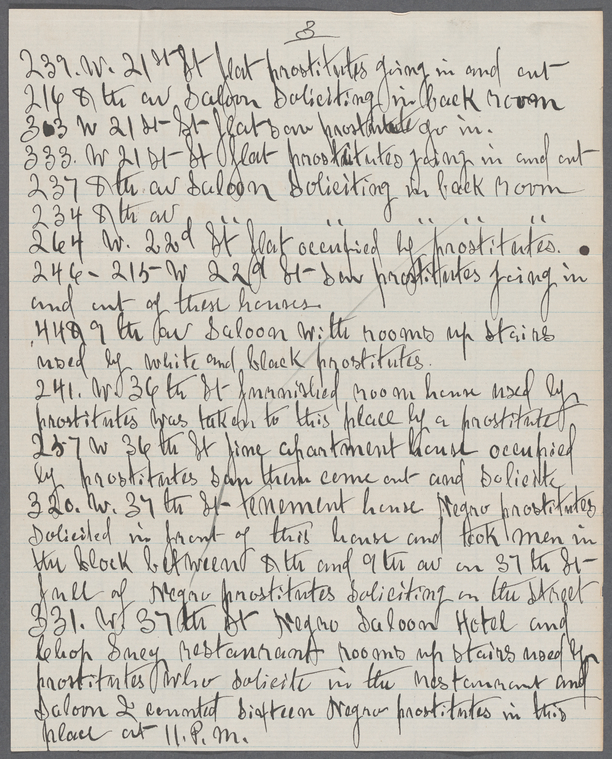 3
239. W. 21st St flat prostitutes going in and out
216 8th av Saloon Soliciting in back room
303 W 21st St flat saw prostitute go in.
333. W 21st St flat prostitutes going in and out
237 8th av Saloon Soliciting in back room
234 8th av " " " " "
264 W. 22d St flat occupied by prostitutes.
246 - 215 - W 22d St - saw prostitutes going in
and out of these houses
448 9th av Saloon with rooms up stairs
used by white and black prostitutes.
241. W. 36th St furnished room house used by
prostitutes was taken to this place by a prostitute
257 W 36th St fine apartment house occupied
by prostitutes saw them come out and solicite
320. W. 37th St - tenement house Negro prostitutes
solicited in front of this house and took men in
the block between 8th and 9th av on 37th St -
full of Negro prostitutes soliciting on the street
331. W. 37th St Negro Saloon Hotel and
Chop Suey restaurant rooms up stairs used by
prostitutes who solicite in the restaurant and
saloon I counted sixteen Negro prostitutes in this
place at 11. P. M.